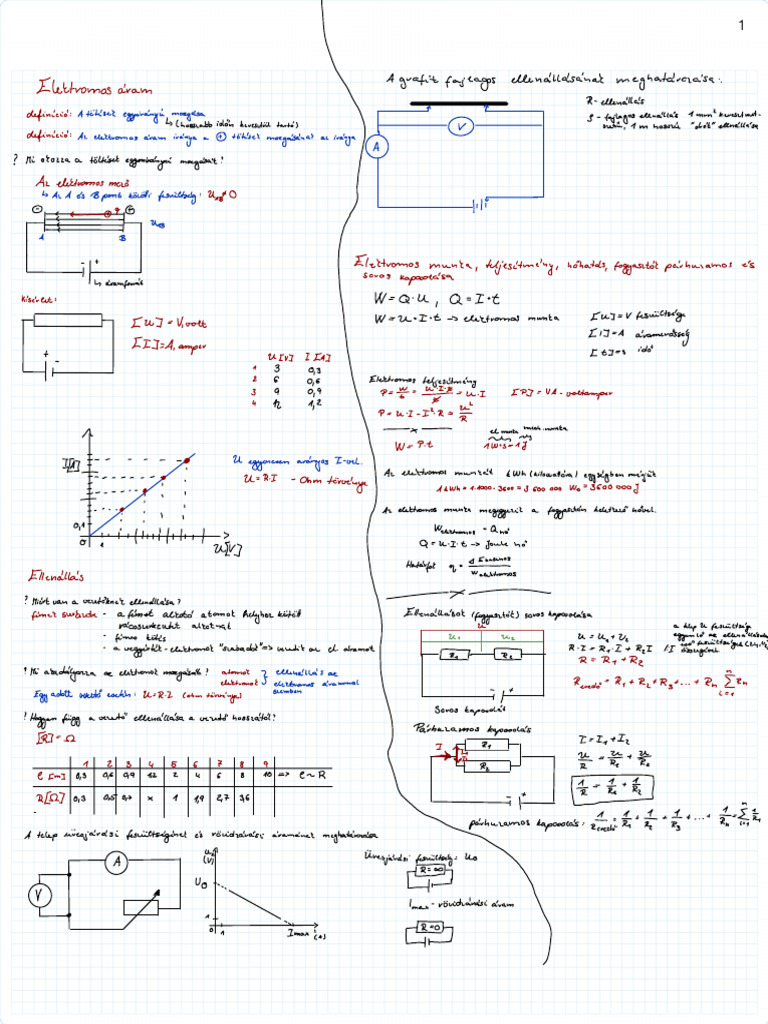 1
Elektromos áram
definíció: A töltések egyirányú mozgása
↳ (hosszabb időn keresztül tartó)
definíció: Az elektromos áram iránya a ⊕ töltések mozgásának az iránya
? Mi okozza a töltések egyirányú mozgását?
Az elektromos mező
↳ Az A és B pont közötti feszültség: U_AB ≠ 0
A B U_AB
- +
↳ áramforrás
Kísérlet:
+ -
[U] = V, volt
[I] = A, amper
U [V] I [A]
1 3 0,3
2 6 0,6
3 9 0,9
4 12 1,2
I[A]
0,1
0 1 U[V]
U egyenesen arányos I-vel.
U = R·I - Ohm törvénye
Ellenállás
? Miért van a vezetőknek ellenállása?
- a fémet alkotó atomok helyhez kötött
rácsszerkezetet alkotnak
- fémes kötés
- a vegyérték-elektronok "szabadok" => vezetik az el. áramot
? Mi akadályozza az elektronok mozgását? atomok
elektronok } ellenállás az
elektromos árammal
szemben
Egy adott vezető esetén: U = R·I (ohm törvénye)
? Hogyan függ a vezető ellenállása a vezető hosszától?
[R] = Ω
1 2 3 4 5 6 7 8 9
l [m] 0,3 0,6 0,9 12 2 4 6 8 10 => l ~ R
R[Ω] 0,3 0,5 0,7 x 1 1,9 2,7 3,6
A telep üresjárási feszültségének és rövidzárási áramának meghatározása
A
V
U (V)
U₀
1
1 I max (A)
A grafit fajlagos ellenállásának meghatározása:
V
A
R - ellenállás
ρ - fajlagos ellenállás 1 mm² keresztmet-
szetű, 1 m hosszú "drót" ellenállása
Elektromos munka, teljesítmény, hőhatás, fogyasztók párhuzamos és
soros kapcsolása
W = Q·U, Q = I·t
W = U·I·t → elektromos munka
[U] = V feszültsége
[I] = A áramerősség
[t] = s idő
Elektromos teljesítmény
P = W/t = U·I·t/t = U·I [P] = VA - voltamper
P = U·I = I²·R = U²/R
W = P·t
el. munka mech. munka
1W·s = 1J
Az elektromos munkát kWh (kilowattóra) egységben mérjük
1 kWh = 1·1000·3600 = 3 600 000 Ws = 3600 000 J
Az elektromos munka megegyezik a fogyasztón keletkező hővel.
W elektromos = Q hő
Q = U·I·t → Joule hő
Ellenállások (fogyasztók) soros kapcsolása
U
U₁ U₂
R₁ R₂
- +
Soros kapcsolás
U = U₁ + U₂
R·I = R₁·I + R₂I /:I
R = R₁ + R₂
R eredő = R₁ + R₂ + R₃ + ... + Rₙ
Párhuzamos kapcsolás
I R₁
R₂
- +
I = I₁ + I₂
U/R = U/R₁ + U/R₂
1/R = 1/R₁ + 1/R₂
párhuzamos kapcsolás: 1/R eredő = 1/R₁ + 1/R₂ + 1/R₃ + ... + 1/Rₙ
Üresjárási feszültség: U₀
R = ∞
I max - rövidzárási áram
R = 0